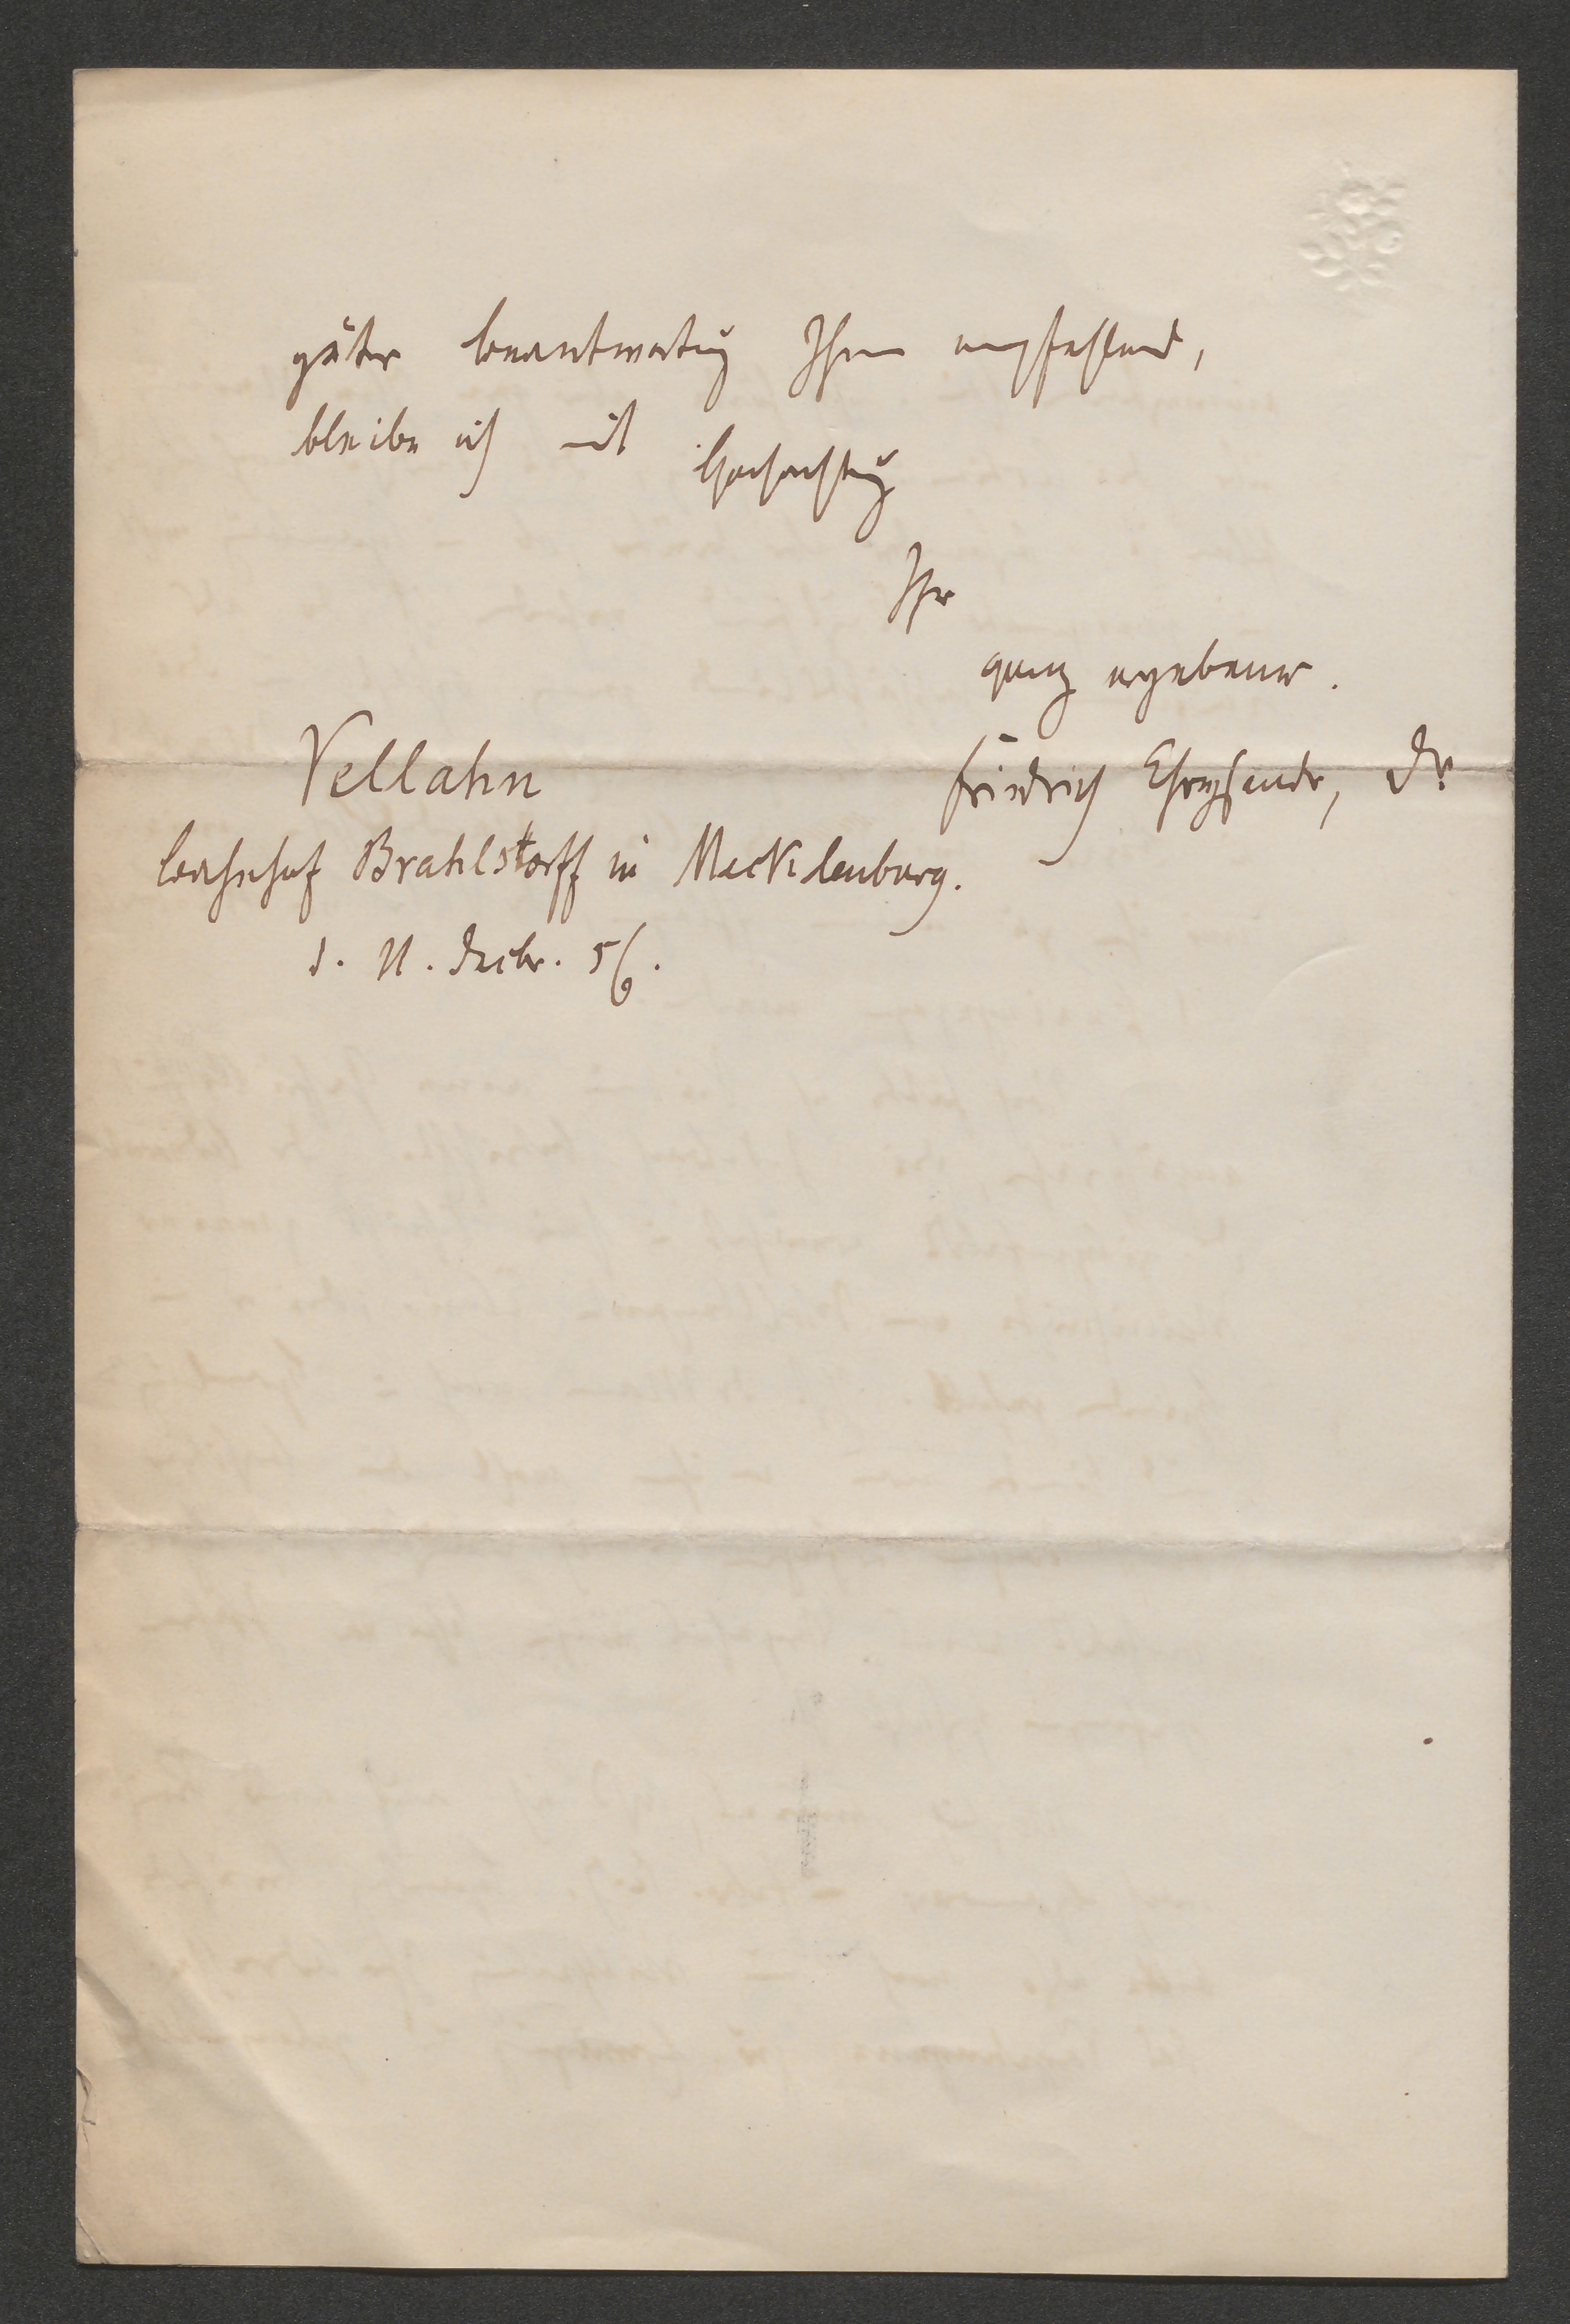 güter Beantwortung Ihnen empfehlend,
bleibe ich mit Hochachtung
Ihr
ganz ergebener.
Friedrich Chrysander, Dr
Vellahn
Bahnhof Brahlstorff in Mecklenburg.
d. 11. Decbr. 56.